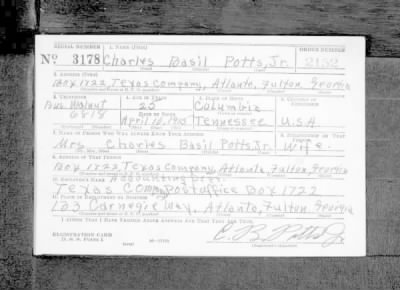 SERIAL NUMBER 1. NAME (Print) ORDER NUMBER
No 3178 Charles Basil Potts, Jr. 2152
2. ADDRESS (Print)
Box 1722, Texas Company, Atlanta, Fulton, Georgia
3. TELEPHONE 4. AGE IN YEARS 5. PLACE OF BIRTH 6. COUNTRY OF CITIZENSHIP
Walnut 20 Columbia
6818 April 10, Tennessee U.S.A.
7. NAME OF PERSON WHO WILL ALWAYS KNOW YOUR ADDRESS 8. RELATIONSHIP OF THAT PERSON
Mrs. Charles Basil Potts, Jr. Wife.
9. ADDRESS OF THAT PERSON
Box 1722, Texas Company, Atlanta, Fulton, Georgia
10. EMPLOYER'S NAME Accounting Dept.
Texas Company Post Office Box 1722
11. PLACE OF EMPLOYMENT OR BUSINESS
133 Carnegie Way, Atlanta, Fulton, Georgia
I AFFIRM THAT I HAVE VERIFIED ABOVE ANSWERS AND THAT THEY ARE TRUE.
REGISTRATION CARD
D. S. S. FORM 1 C. B. Potts Jr